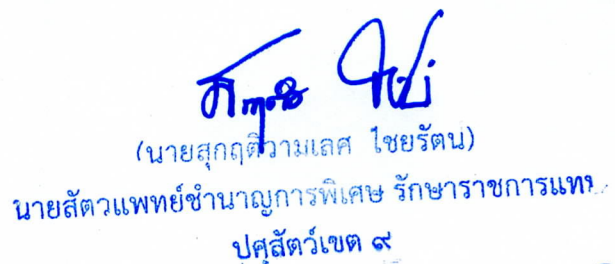 (นายสุกฤติวามเลศ ไชยรัตน)
นายสัตวแพทย์ชำนาญการพิเศษ รักษาราชการแทน
ปศุสัตว์เขต ๙